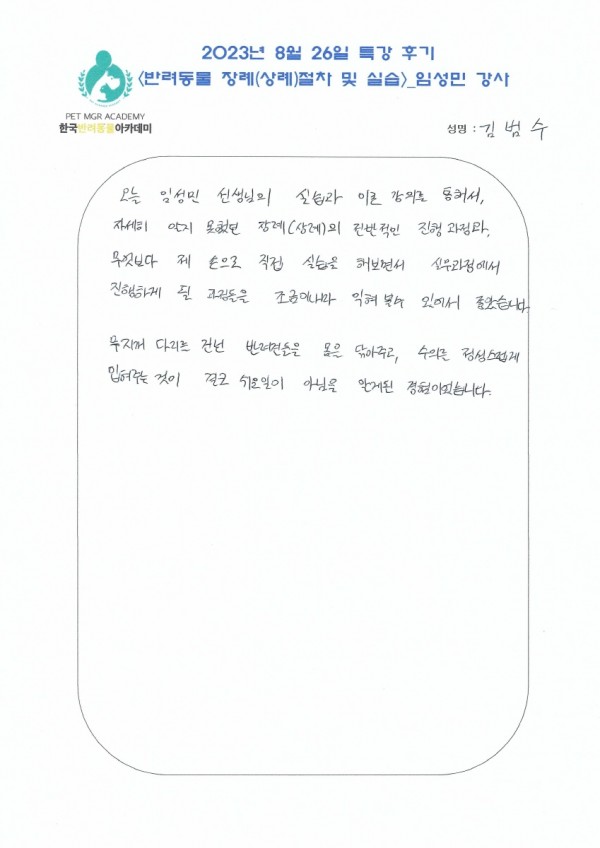 2023년 8월 26일 특강 후기
<반려동물 장례(상례)절차 및 실습>_임성민 강사
PET MGR ACADEMY
한국반려동물아카데미
성명 : 김 범 수
오늘 임성민 선생님의 실습과 이론 강의를 통해서,
자세히 알지 못했던 장례(상례)의 전반적인 진행 과정과,
무엇보다 제 손으로 직접 실습을 해보면서 실무과정에서
진행하게 될 과정들을 조금이나마 익혀 볼수 있어서 좋았습니다.
무지개 다리를 건넌 반려견들을 몸은 닦아주고, 수의를 정성스럽게
입혀주는 것이 결코 쉬운일이 아님을 알게된 경험이었습니다.